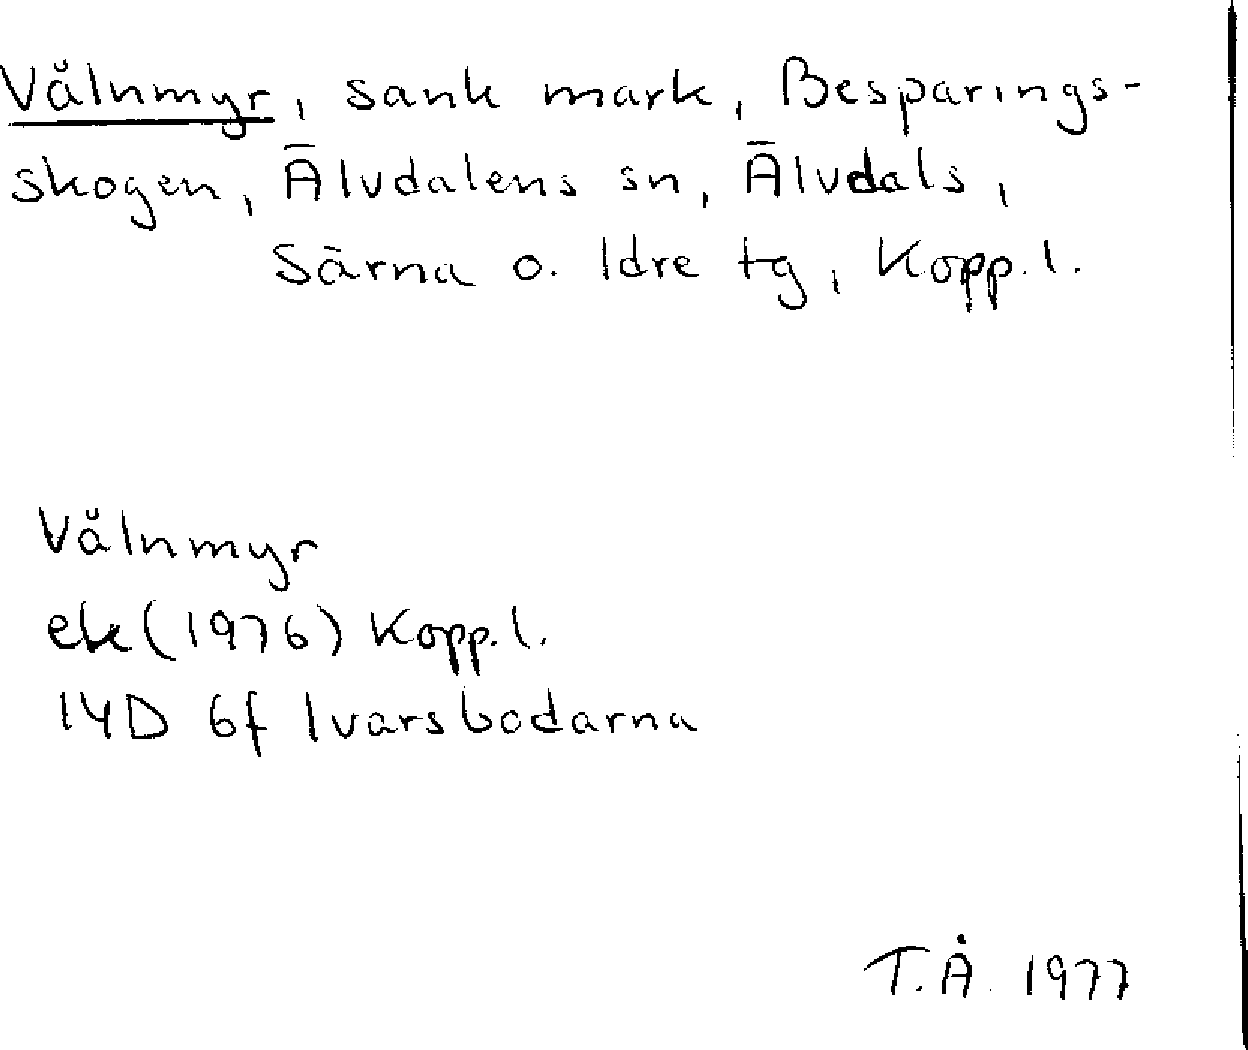 Vålnmyr, sank mark, Besparings-
skogen, Älvdalens sn, Älvdals,
Särna o. Idre tg, Kopp. l.
Vålnmyr
ek (1976) Kopp. l.
14D 6f Ivarsbodarna
T.Å. 1977